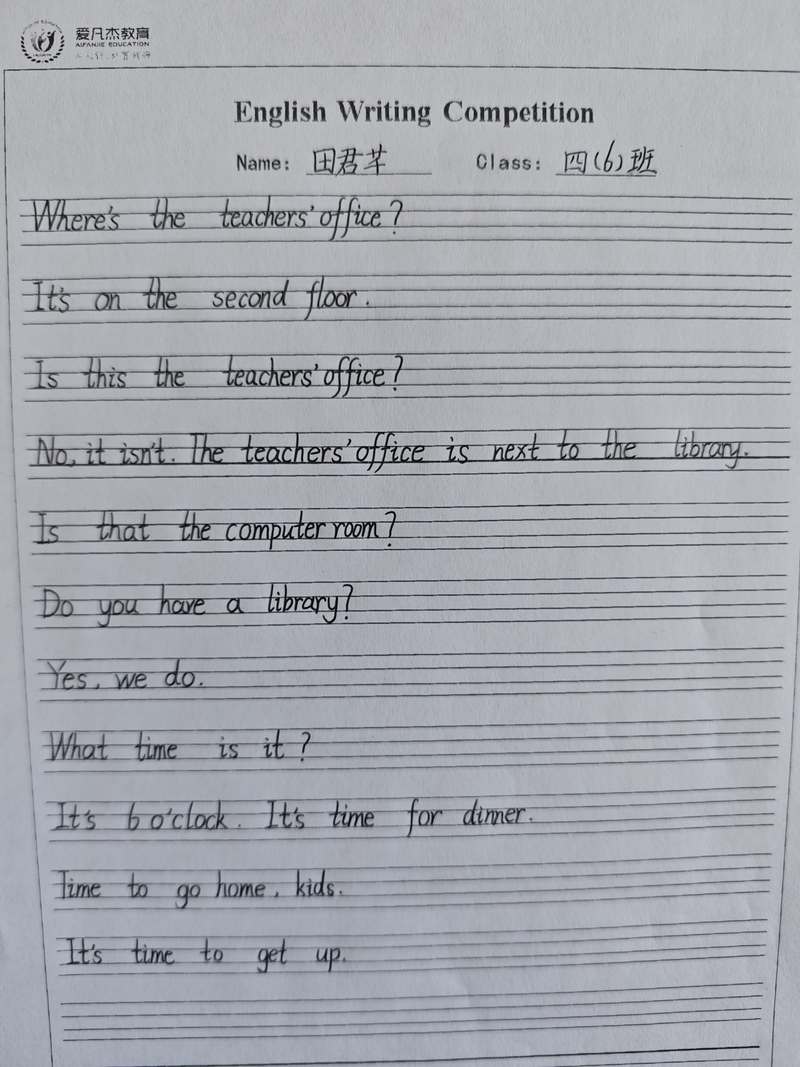 爱凡杰教育
AIFANJIE EDUCATION
English Writing Competition
Name: 田君芊 Class: 四(6)班
Where's the teachers' office?
It's on the second floor.
Is this the teachers' office?
No, it isn't. The teachers' office is next to the library.
Is that the computer room?
Do you have a library?
Yes, we do.
What time is it?
It's 6 o'clock. It's time for dinner.
Time to go home, kids.
It's time to get up.